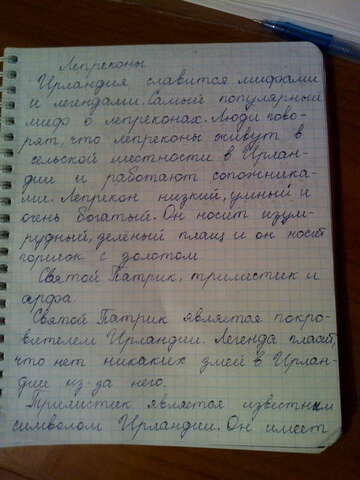 Лепреконы
Ирландия славится мифами
и легендами. Самый популярный
миф о лепреконах. Люди гово-
рят, что лепреконы живут в
сельской местности в Ирлан-
дии и работают сапожника-
ми. Лепрекон низкий, умный и
очень богатый. Он носит изум-
рудный, зелёный плащ и он носит
горшок с золотом
Святой Патрик, трилистик и
арфа
Святой Патрик является покро-
вителем Ирландии. Легенда гласит,
что нет никаких змей в Ирлан-
дии из-за него.
Трилистик является известным
символом Ирландии. Он имеет